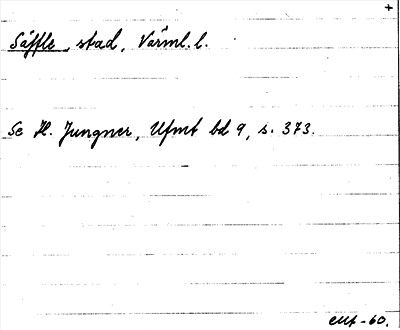 +
Säffle, stad, Värml. l.
Se H. Jungner, Ufmt bd 9, s. 373.
-60.